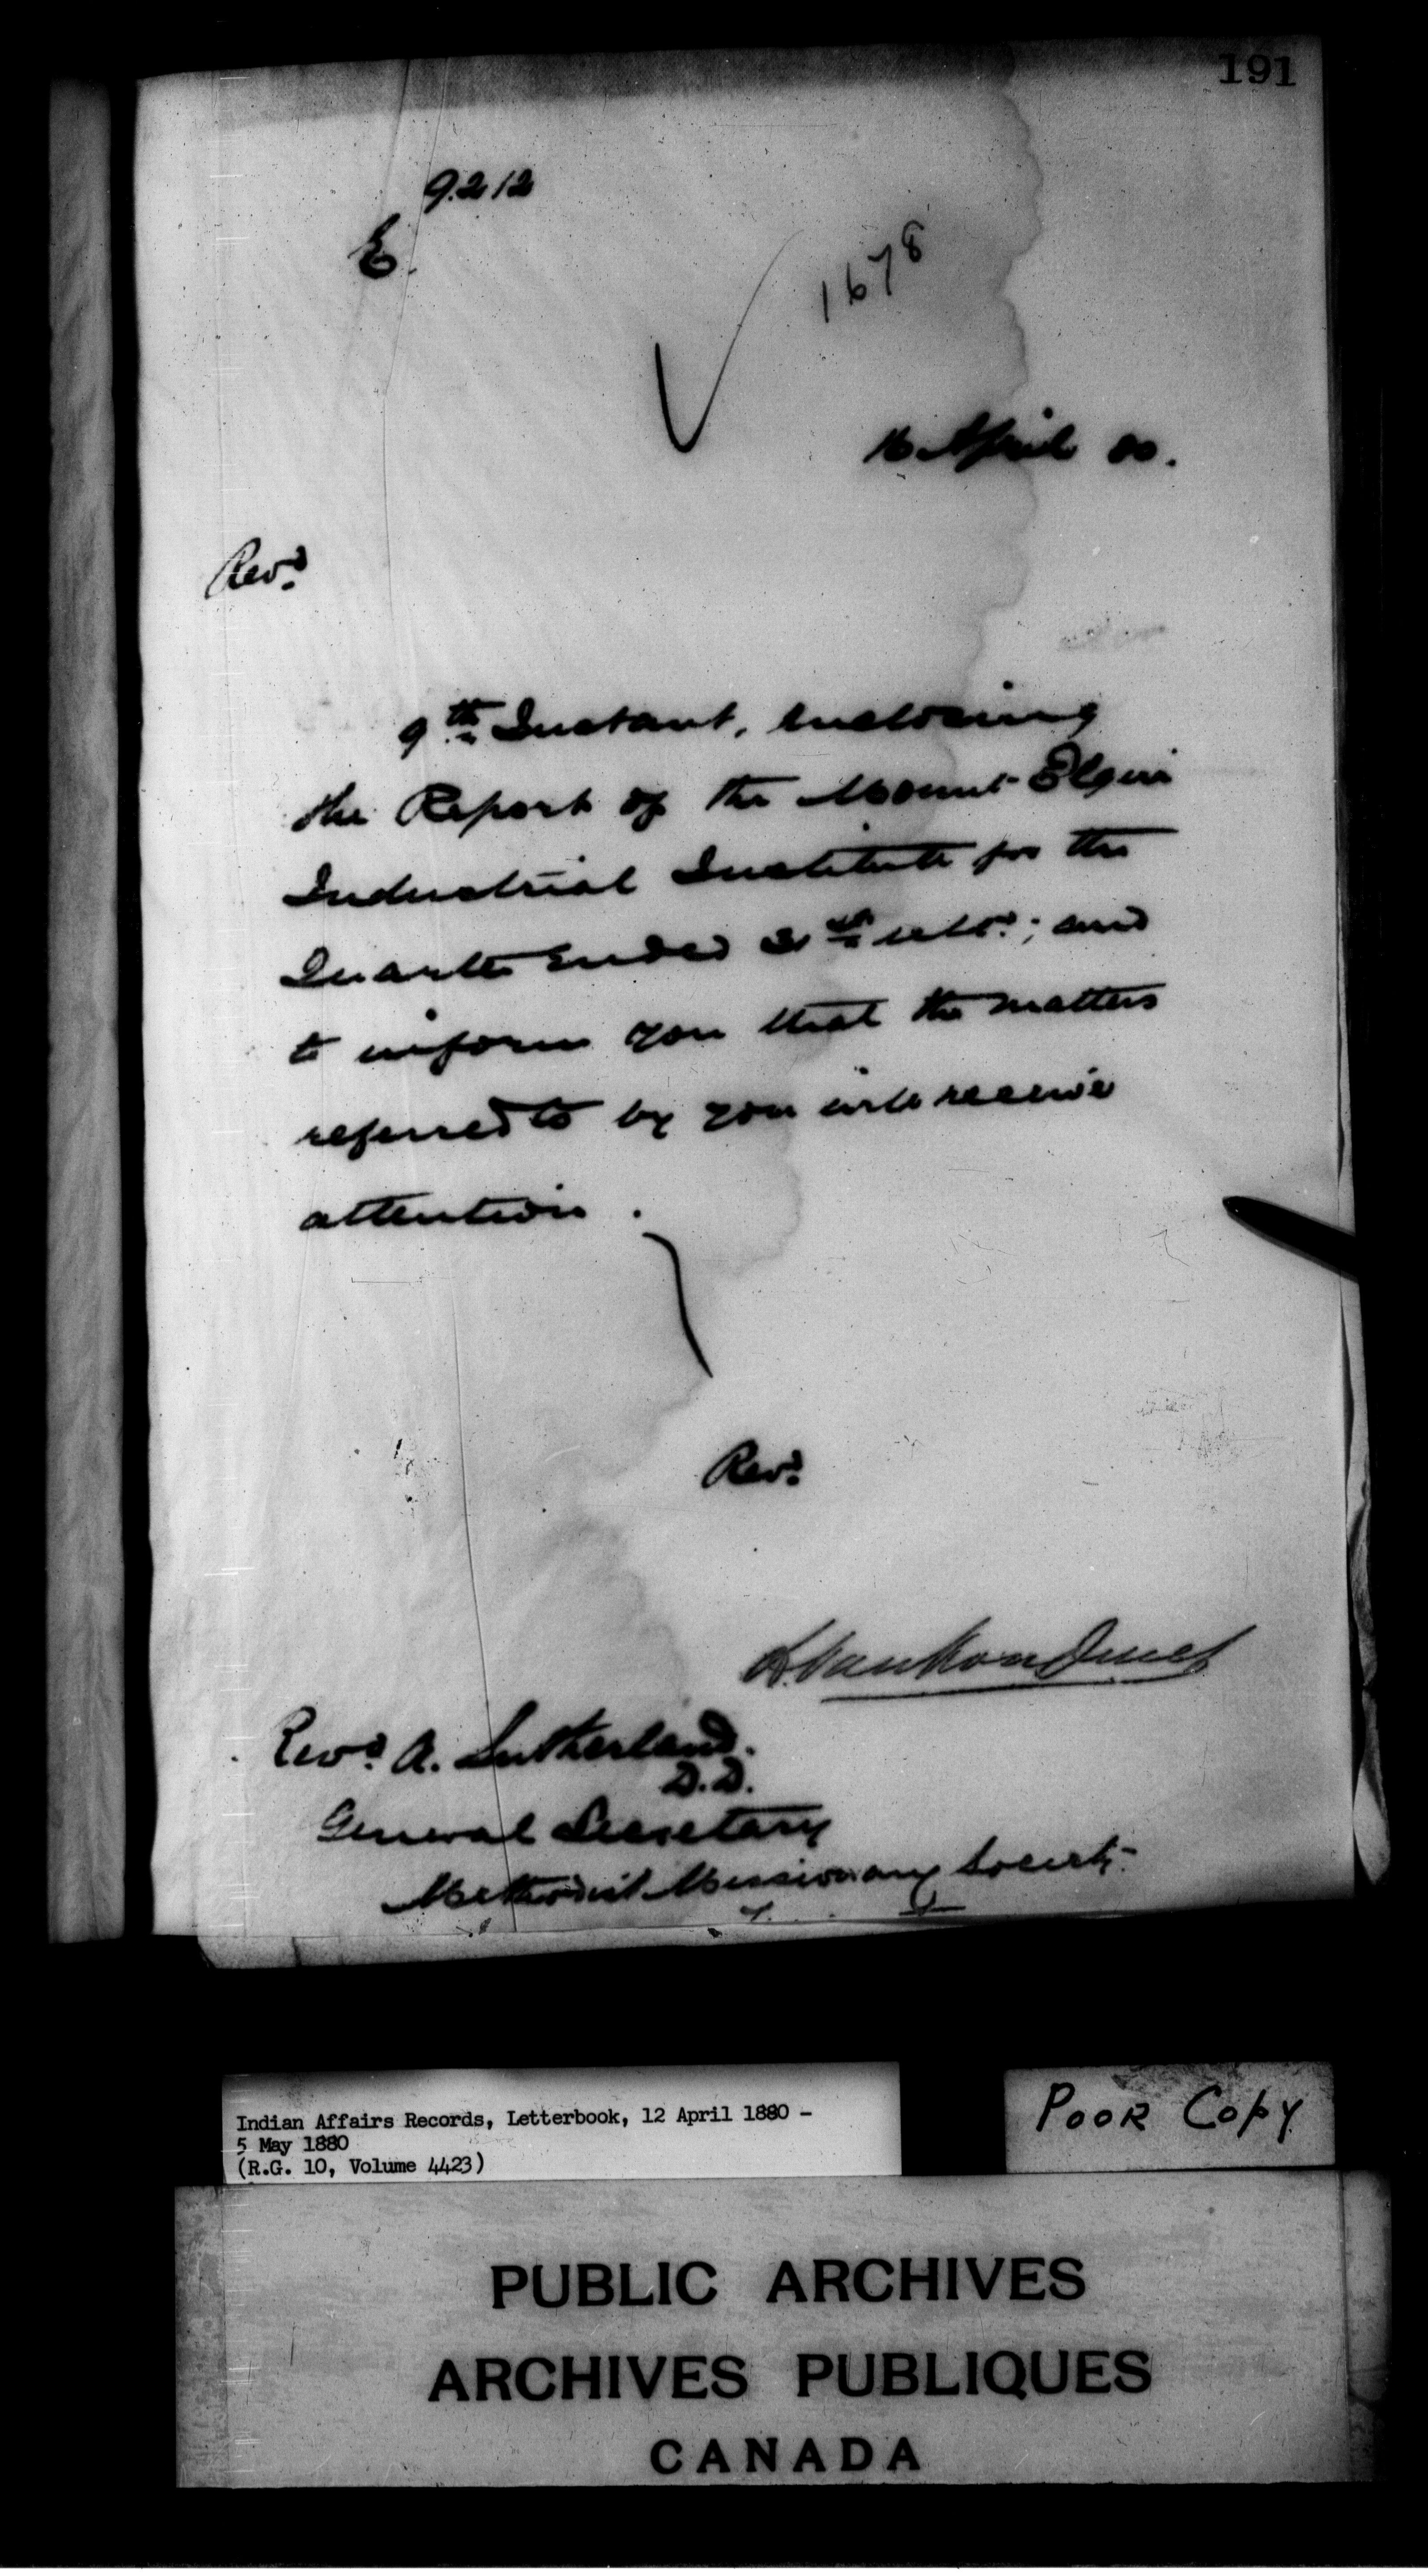 191
9212
E.
1678
16 April 80.
Revd.
9th Instant, enclosing
the Report of the Mount Elgin
Industrial Institute for the
Quarter ended 31st ulto.; and
to inform you that the matters
referred to by you will receive
attention.
Revd.
L. VanKoughnet
Revd. A. Sutherland.
D.D.
General Secretary
Methodist Missionary Society
Indian Affairs Records, Letterbook, 12 April 1880 -
5 May 1880
(R.G. 10, Volume 4423)
POOR COPY
PUBLIC ARCHIVES
ARCHIVES PUBLIQUES
CANADA